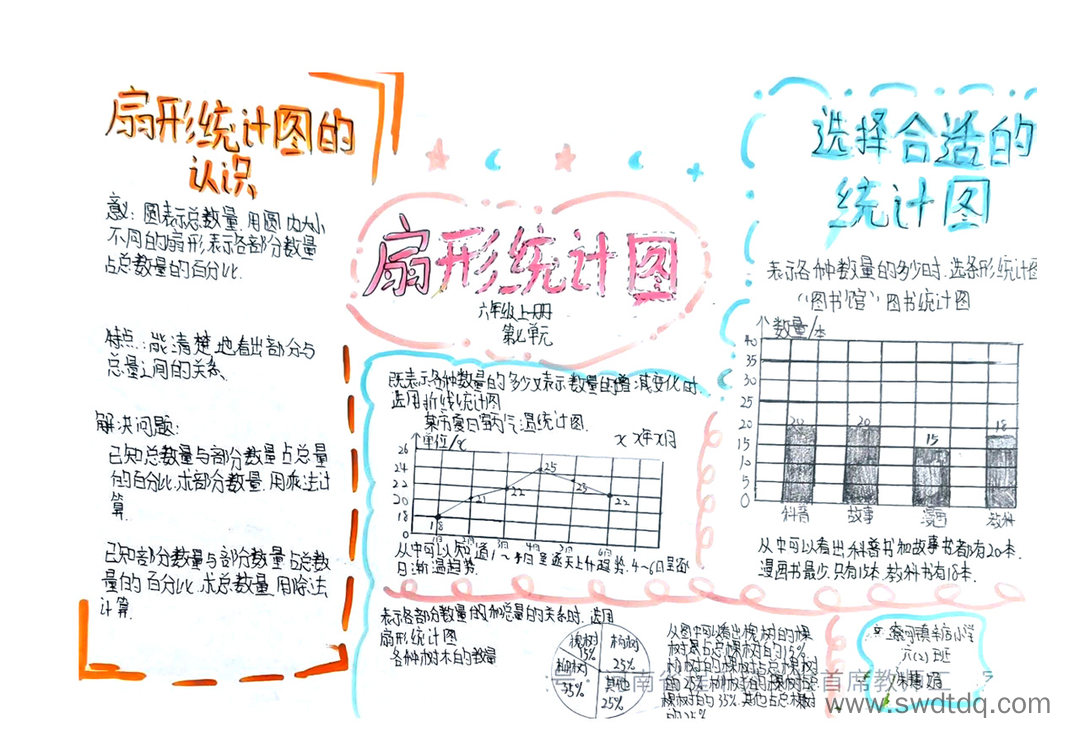 扇形统计图的
认识
意义: 圆表示总数量,用圆内大小
不同的扇形表示各部分数量
占总数量的百分比.
特点: 能清楚地看出部分与
总量之间的关系.
解决问题:
已知总数量与部分数量占总量
的百分比,求部分数量,用乘法计
算.
已知部分数量与部分数量占总数
量的百分比,求总数量,用除法
计算.
扇形统计图
六年级上册
第七单元
既表示各种数量的多少又表示数量的增减变化时.
选用折线统计图
某市夏日室内气温统计图.
x x年x月
单位/℃
26
24
22
20
18
18
21
22
25
23
22
1日 2日 3日 4日 5日 6日
从中可以知道1~4日呈逐天上升趋势.4~6日呈逐
日渐温趋势.
选择合适的
统计图
表示各种数量的多少时.选条形统计图
“图书馆”图书统计图
数量/本
40
35
30
25
20
15
10
5
0
20
20
15
18
科普 故事 漫画 教科
从中可以看出科普书和故事书都有20本.
漫画书最少.只有15本.教科书有18本.
表示各部分数量的和总量的关系时.选用
扇形统计图
各种树木的数量
槐树
15%
构树
25%
柳树
35%
其他
25%
从图中可以看出槐树的棵
树是占总棵树的15%
构树的棵树占总棵树
的25%
棵树的35%.其他占总棵树
的25%
六(2)班
南
首席教师工
www.swdtdq.com